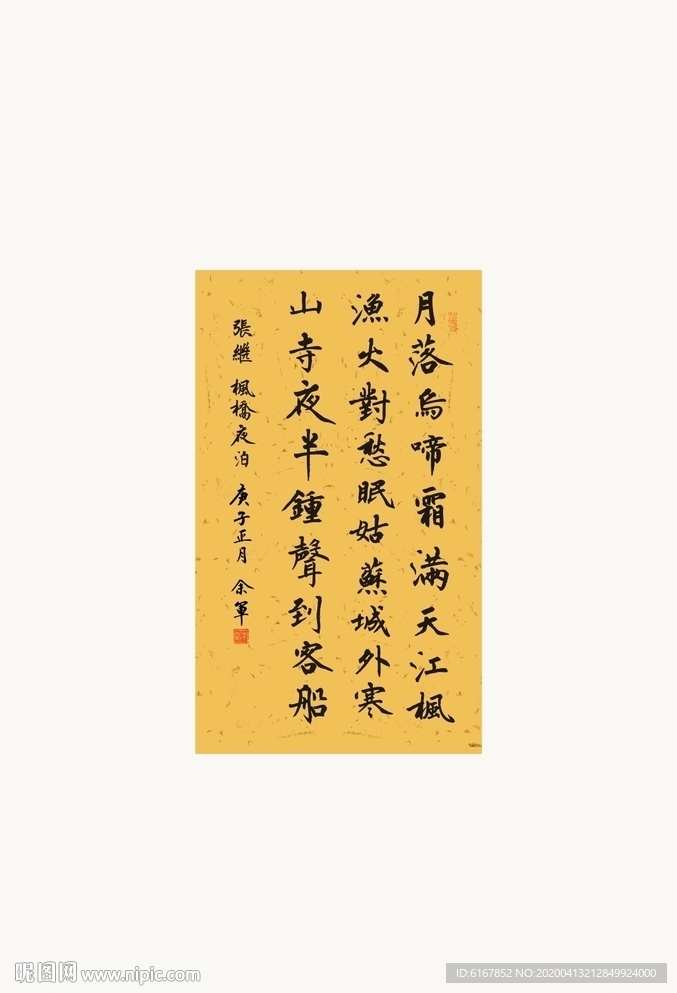 月落烏啼霜满天江楓
漁火對愁眠姑蘇城外寒
山寺夜半鍾聲到客船
張繼 楓橋夜泊 庚子正月 余軍
昵图网 www.nipic.com
ID:6167852 NO:20200413212849924000